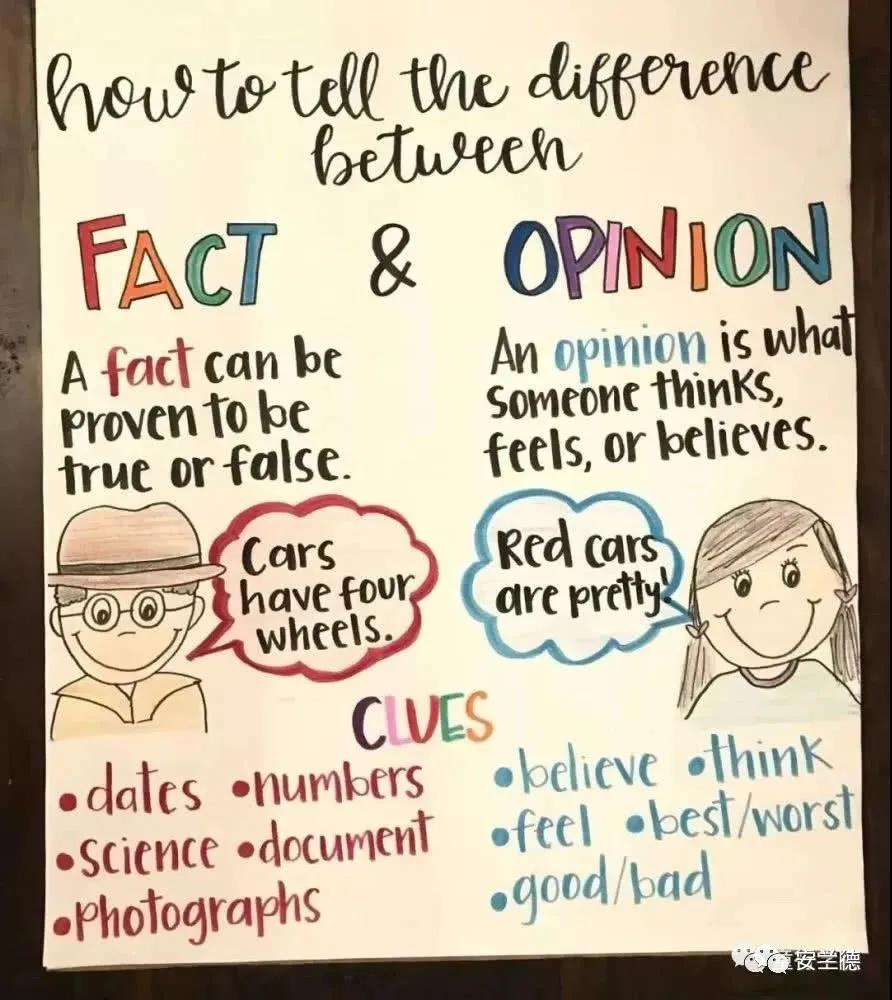 how to tell the difference
between
FACT & OPINION
A fact can be
proven to be
true or false.
An opinion is what
someone thinks,
feels, or believes.
Cars
have four
wheels.
Red cars
are pretty!
CLUES
•dates •numbers
•science •document
•photographs
•believe •think
•feel •best/worst
•good/bad
安学德